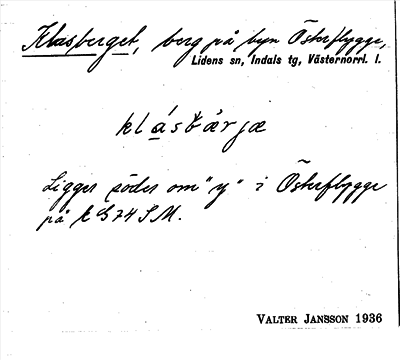 Klasberget, berg på byn Österflygge,
Lidens sn, Indals tg, Västernorrl. l.
klásbärjæ
Ligger söder om "y" i Österflygge
på k G 74 SM.
VALTER JANSSON 1936